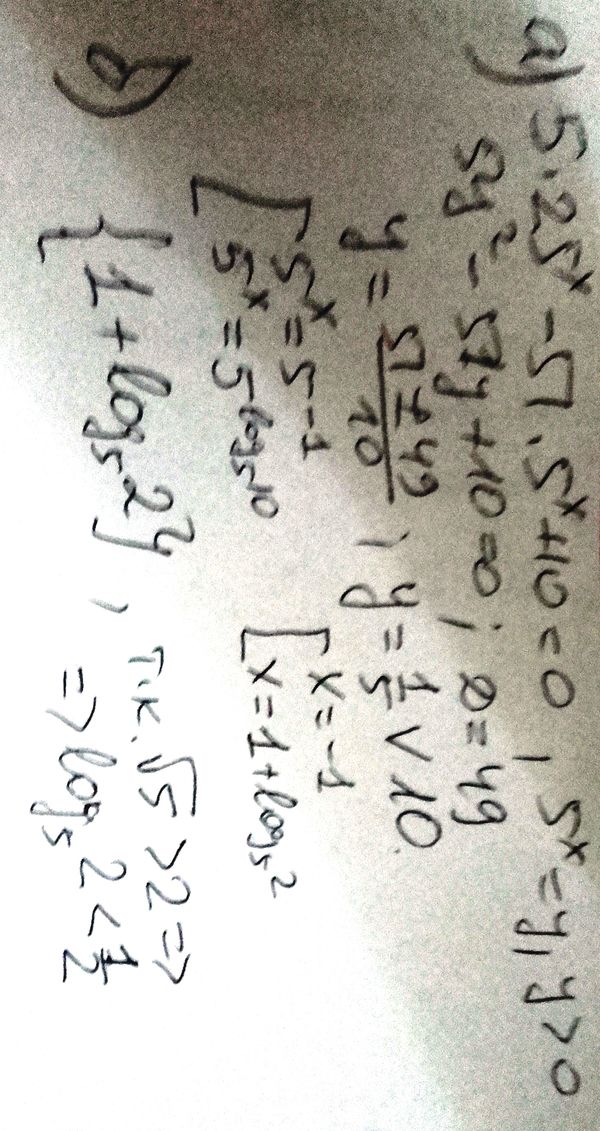 а) 5·25ˣ - 51·5ˣ + 10 = 0, 5ˣ = y, y > 0
5y² - 51y + 10 = 0; D = 49
y = (51 ± 49)/10, y = 1/5 ∨ 10.
[5ˣ = 5⁻¹ [x = -1
[5ˣ = 5^(log₅10) [x = 1 + log₅2
б) {1 + log₅2}, т.к. √5 > 2 =>
=> log₅2 < 1/2